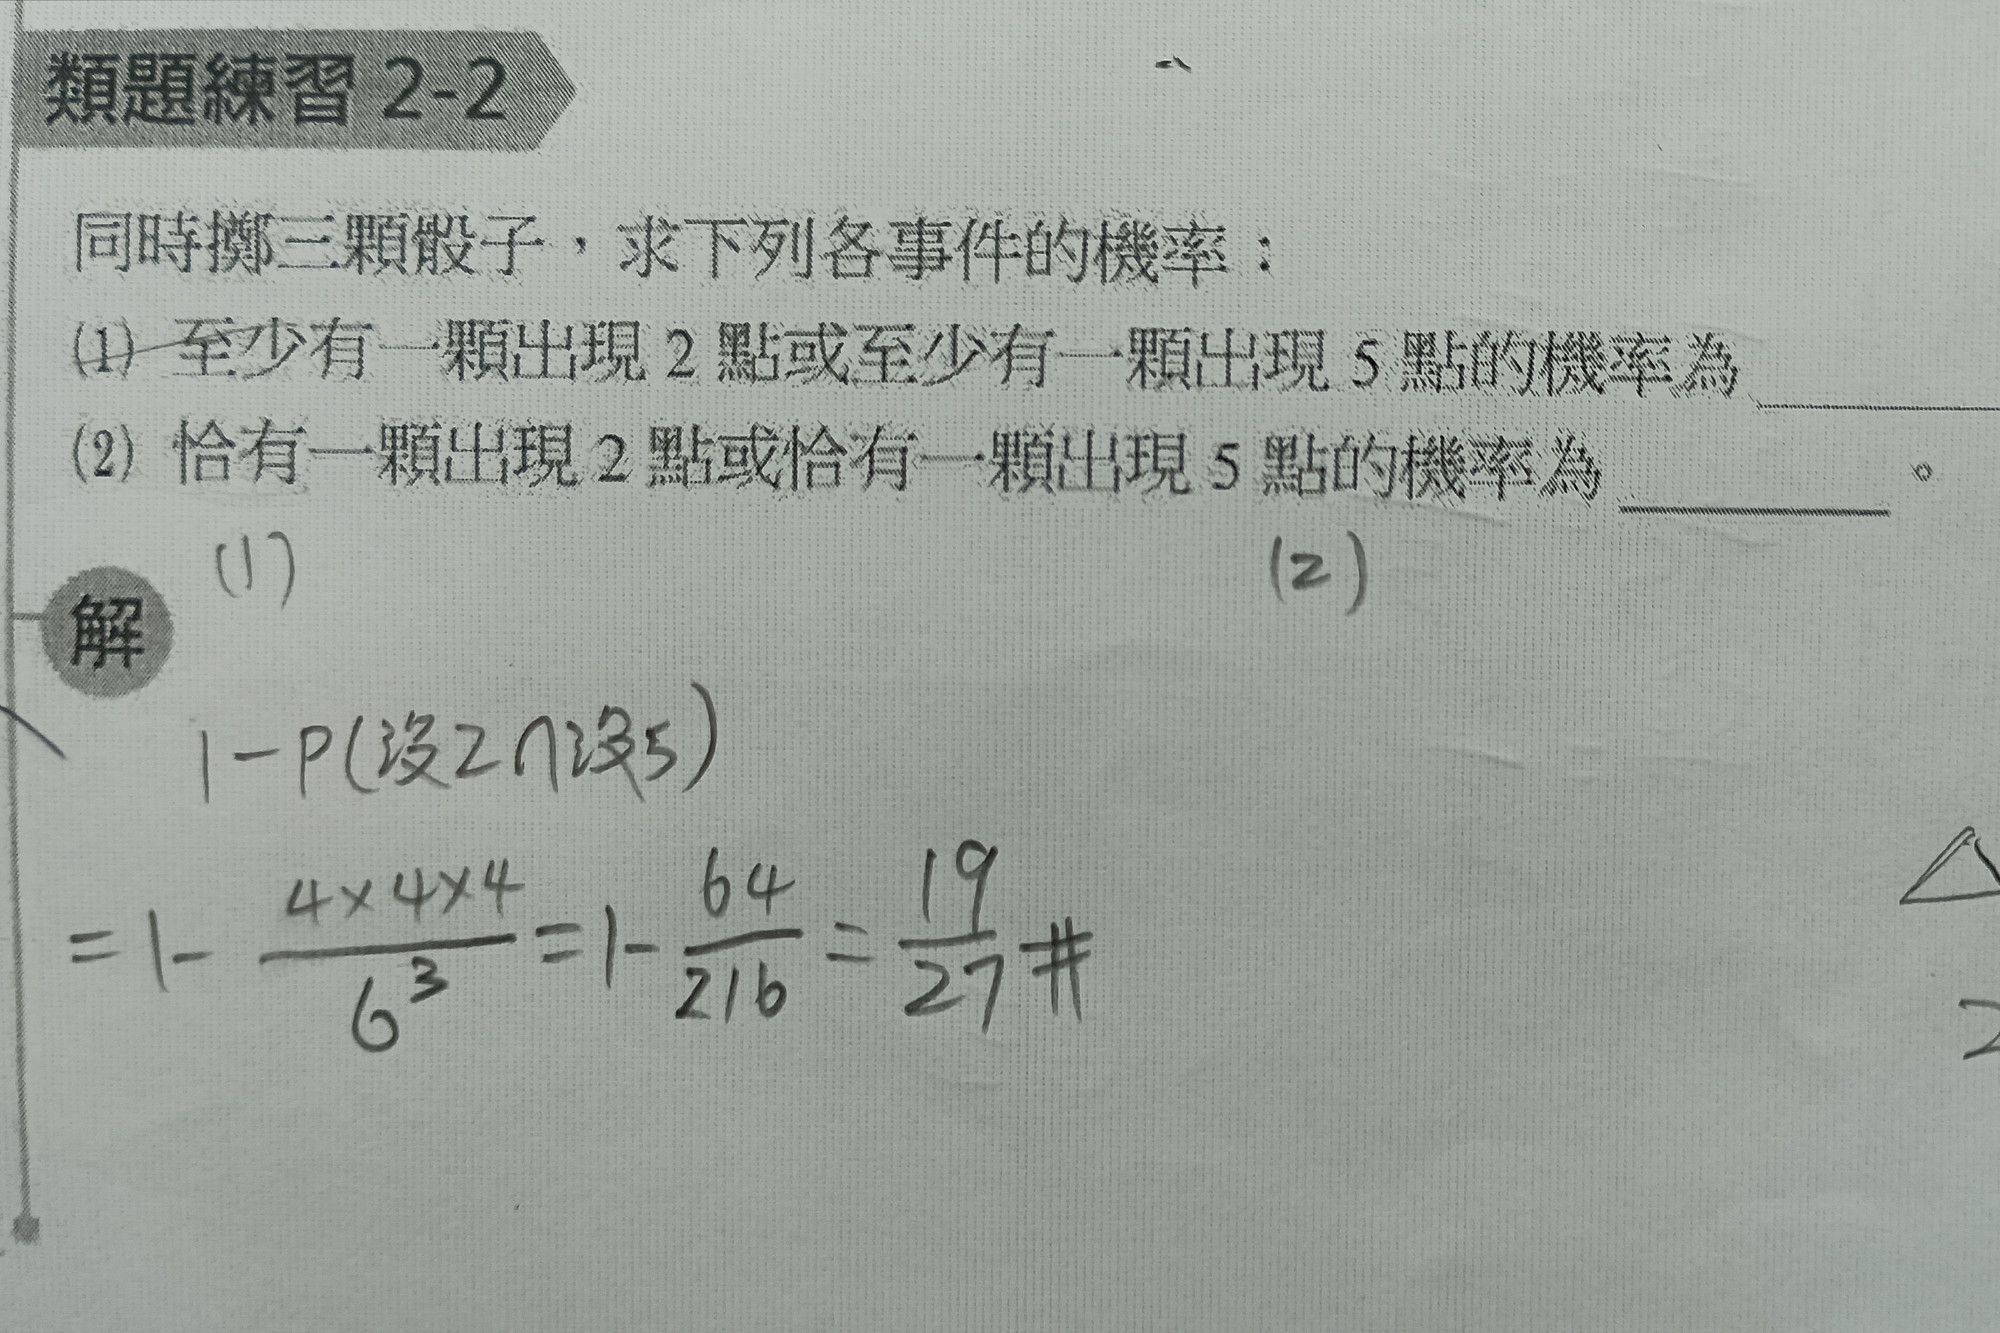 類題練習 2-2
同時擲三顆骰子，求下列各事件的機率：
(1) 至少有一顆出現 2 點或至少有一顆出現 5 點的機率為
(2) 恰有一顆出現 2 點或恰有一顆出現 5 點的機率為 。
(1) (2)
解
1-P(沒2∩沒5)
=1- 4×4×4/6³ =1- 64/216 = 19/27 #
2